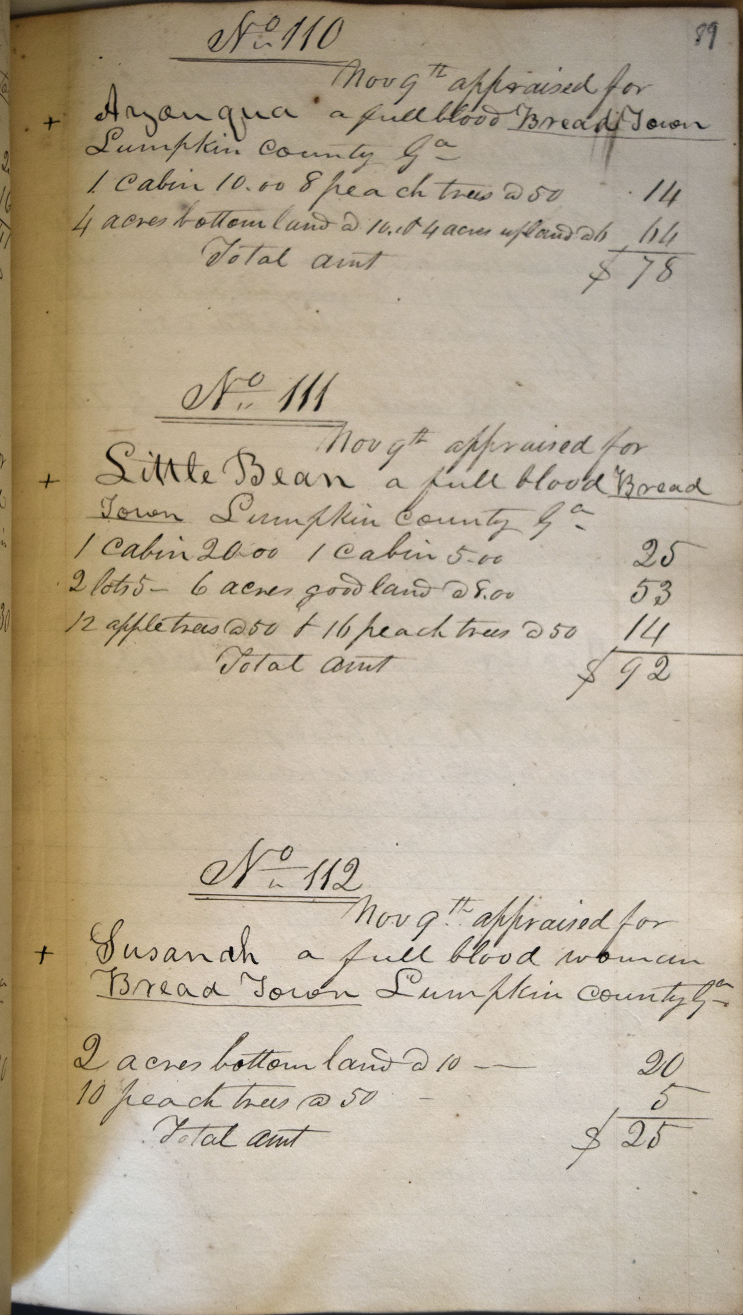 89
No 110
Nov 9th appraised for
+ Aryonqua a full blood Bread Town
Lumpkin county Ga
1 cabin 10.00 8 peach trees @ 50 14
4 acres bottom land @ 10. & 4 acres upland @ 6 64
Total amt $ 78
No 111
Nov 9th appraised for
+ Little Bean a full blood Bread
Town Lumpkin county Ga
1 cabin 20.00 1 cabin 5.00 25
2 lots 5 - 6 acres good land @ 8.00 53
12 apple trees @ 50 & 16 peach trees @ 50 14
Total amt $ 92
No 112
Nov 9th appraised for
+ Susanah a full blood woman
Bread Town Lumpkin county Ga
2 acres bottom land @ 10 — 20
10 peach trees @ 50 - 5
Total amt $ 25